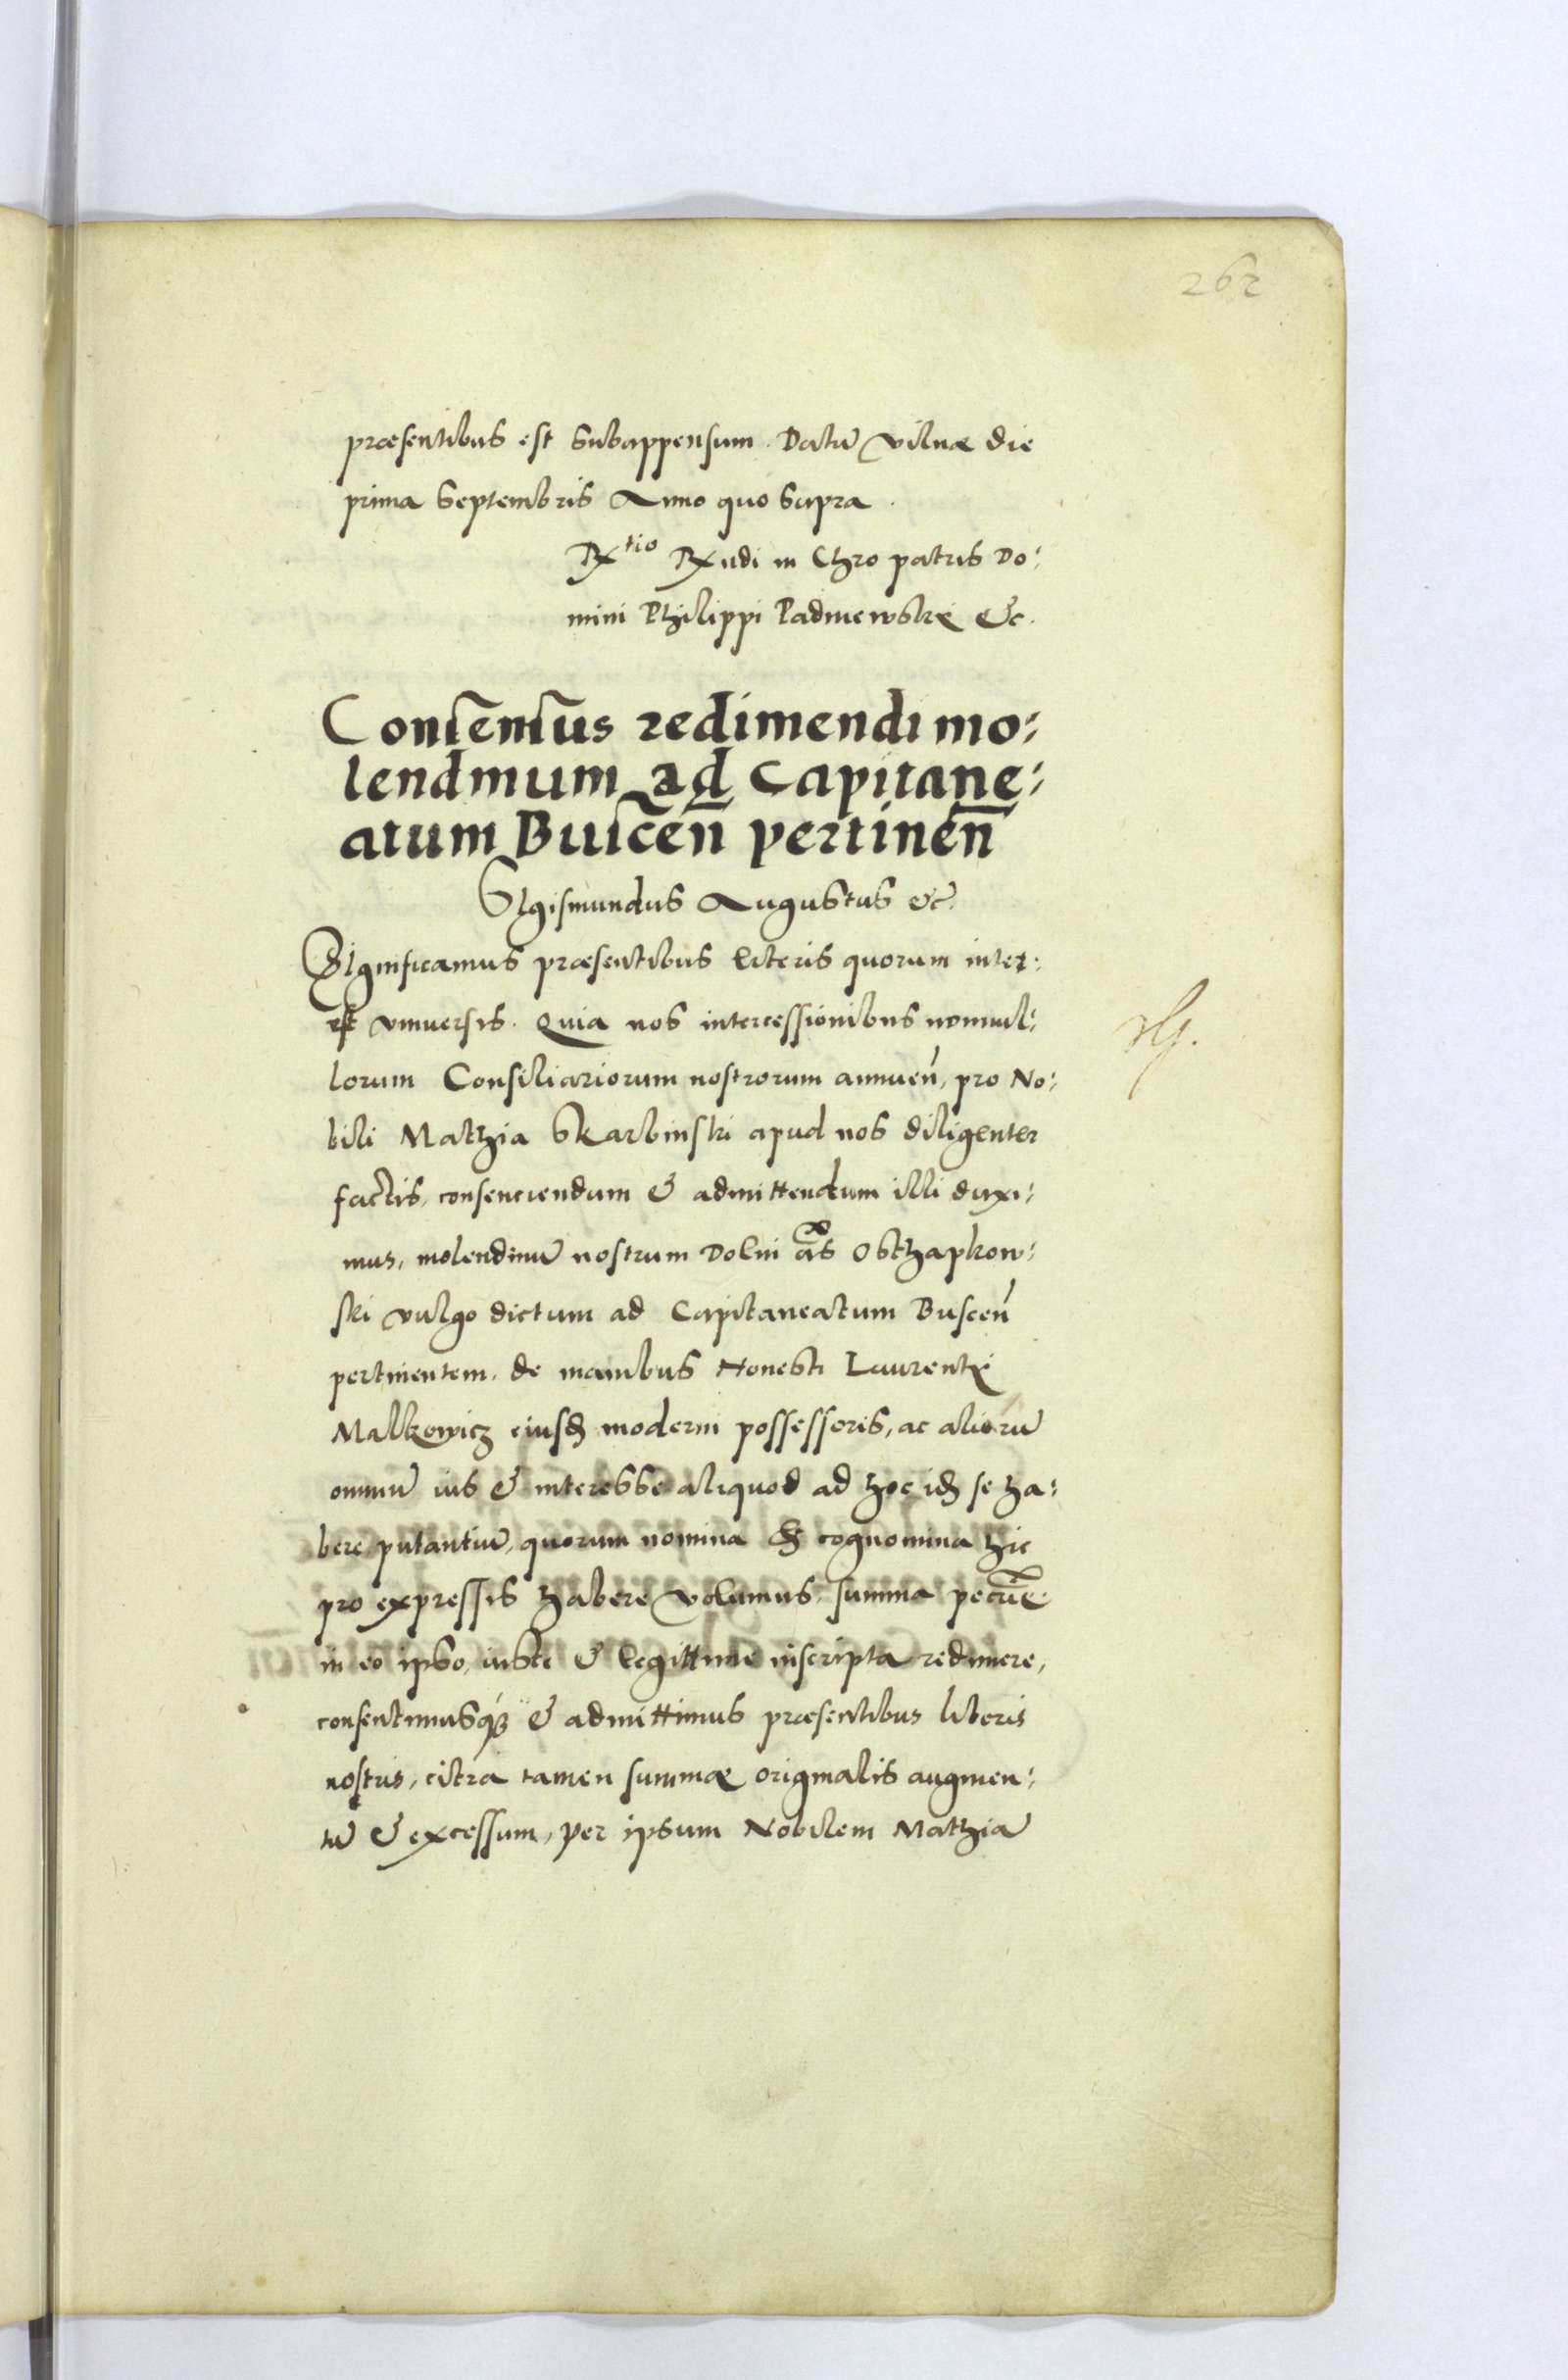 262
præsentibus est subappensum. Datũ Vilnæ die
prima Septembris Anno quo supra.
Rtio Rndi in Chro patris Do:
mini Philippi Padniewskij &c.
Consensus redimendi mo:
lendinum ad Capitane:
atum Buscen̄ pertinen̄
Sigismundus Augustus &c̃
Significamus præsentibus literis quorum inter:
est vniuersis. Quia nos intercessionibus nonnul:
lorum Consiliariorum nostrorum annuen̄, pro No:
bili Mathia Skarbinski apud nos diligenter
factis, consenciendum & admittendum illi duxi:
mus, molendinũ nostrum Dolni als Osthapkow:
ski vulgo dictum ad Capitaneatum Buscen̄
pertinentem, de manibus Honesti Laurentij
Malkowicz eiusd moderni possessoris, ac aliorũ
omniũ ius & interesse aliquod ad hoc id se ha:
bere putantiũ, quorum nomina & cognomina hic
pro expressis habere volumus, summa pecũe
in eo ipso, iuste & legittime inscripta redimere,
consentimusq & admittimus præsentibus literis
nostris, citra tamen summæ originalis augmen:
tũ & excessum, per ipsum Nobilem Mathiã